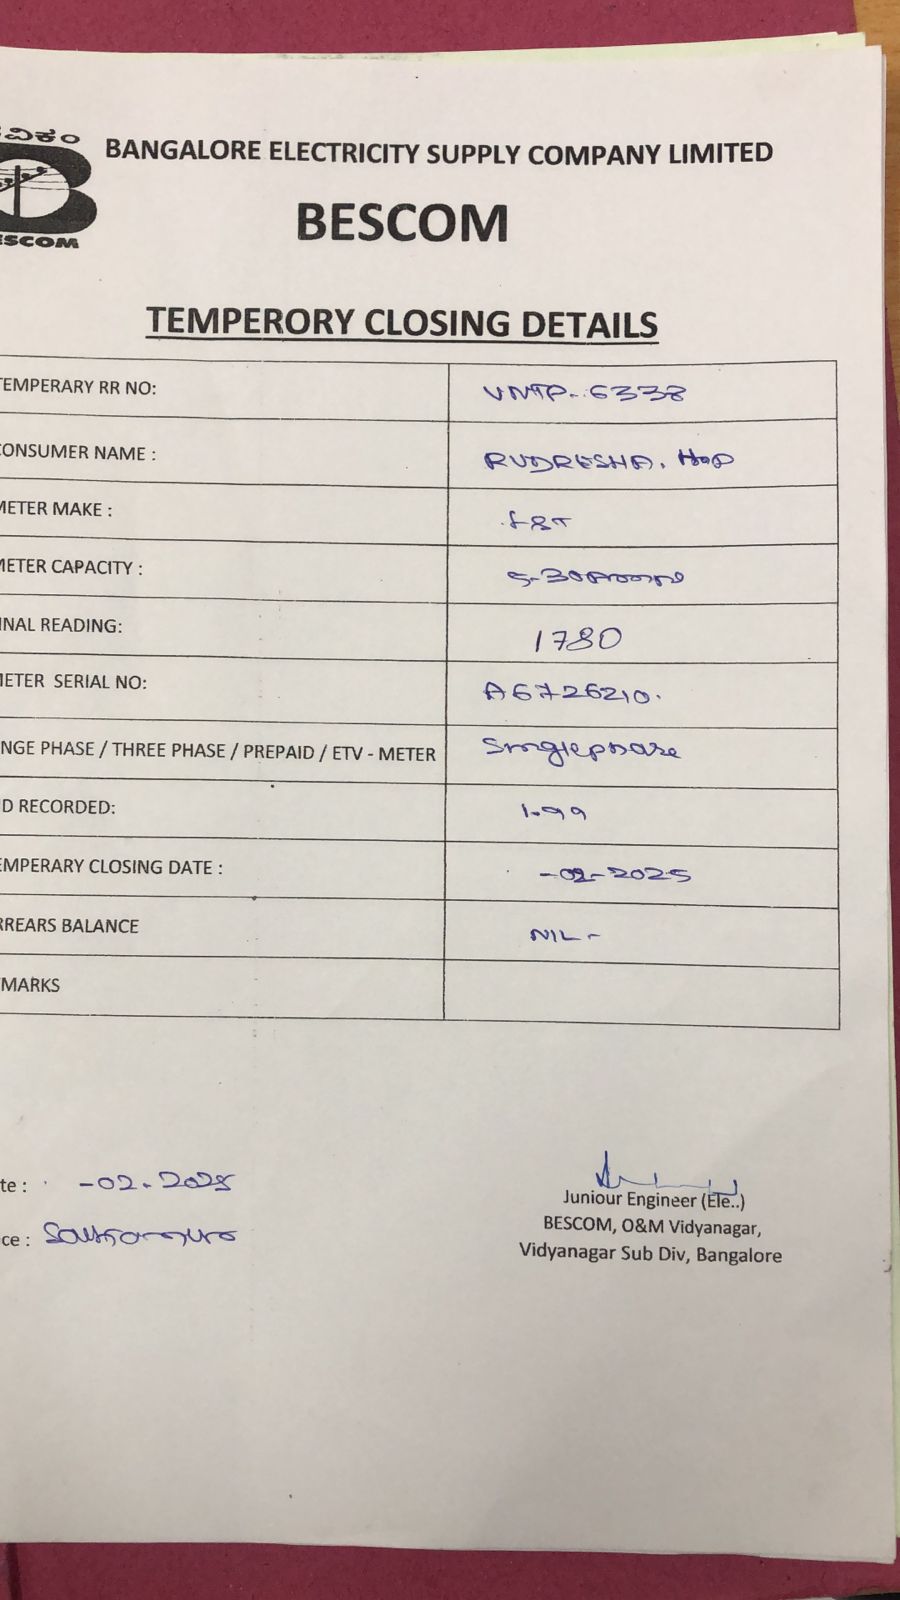 ವಿಕಂ
BANGALORE ELECTRICITY SUPPLY COMPANY LIMITED
ESCOM
BESCOM
TEMPERORY CLOSING DETAILS
TEMPERARY RR NO: VNTP-6338
CONSUMER NAME : RUDRESHA. H
METER MAKE : L&T
METER CAPACITY : 5-30
INAL READING: 1780
METER SERIAL NO: A6726210.
NGE PHASE / THREE PHASE / PREPAID / ETV - METER Singlephase
D RECORDED: 1.99
EMPERARY CLOSING DATE : -02-2025
RREARS BALANCE NIL-
MARKS
te : -02-2025
ce :
Juniour Engineer (Ele..)
BESCOM, O&M Vidyanagar,
Vidyanagar Sub Div, Bangalore